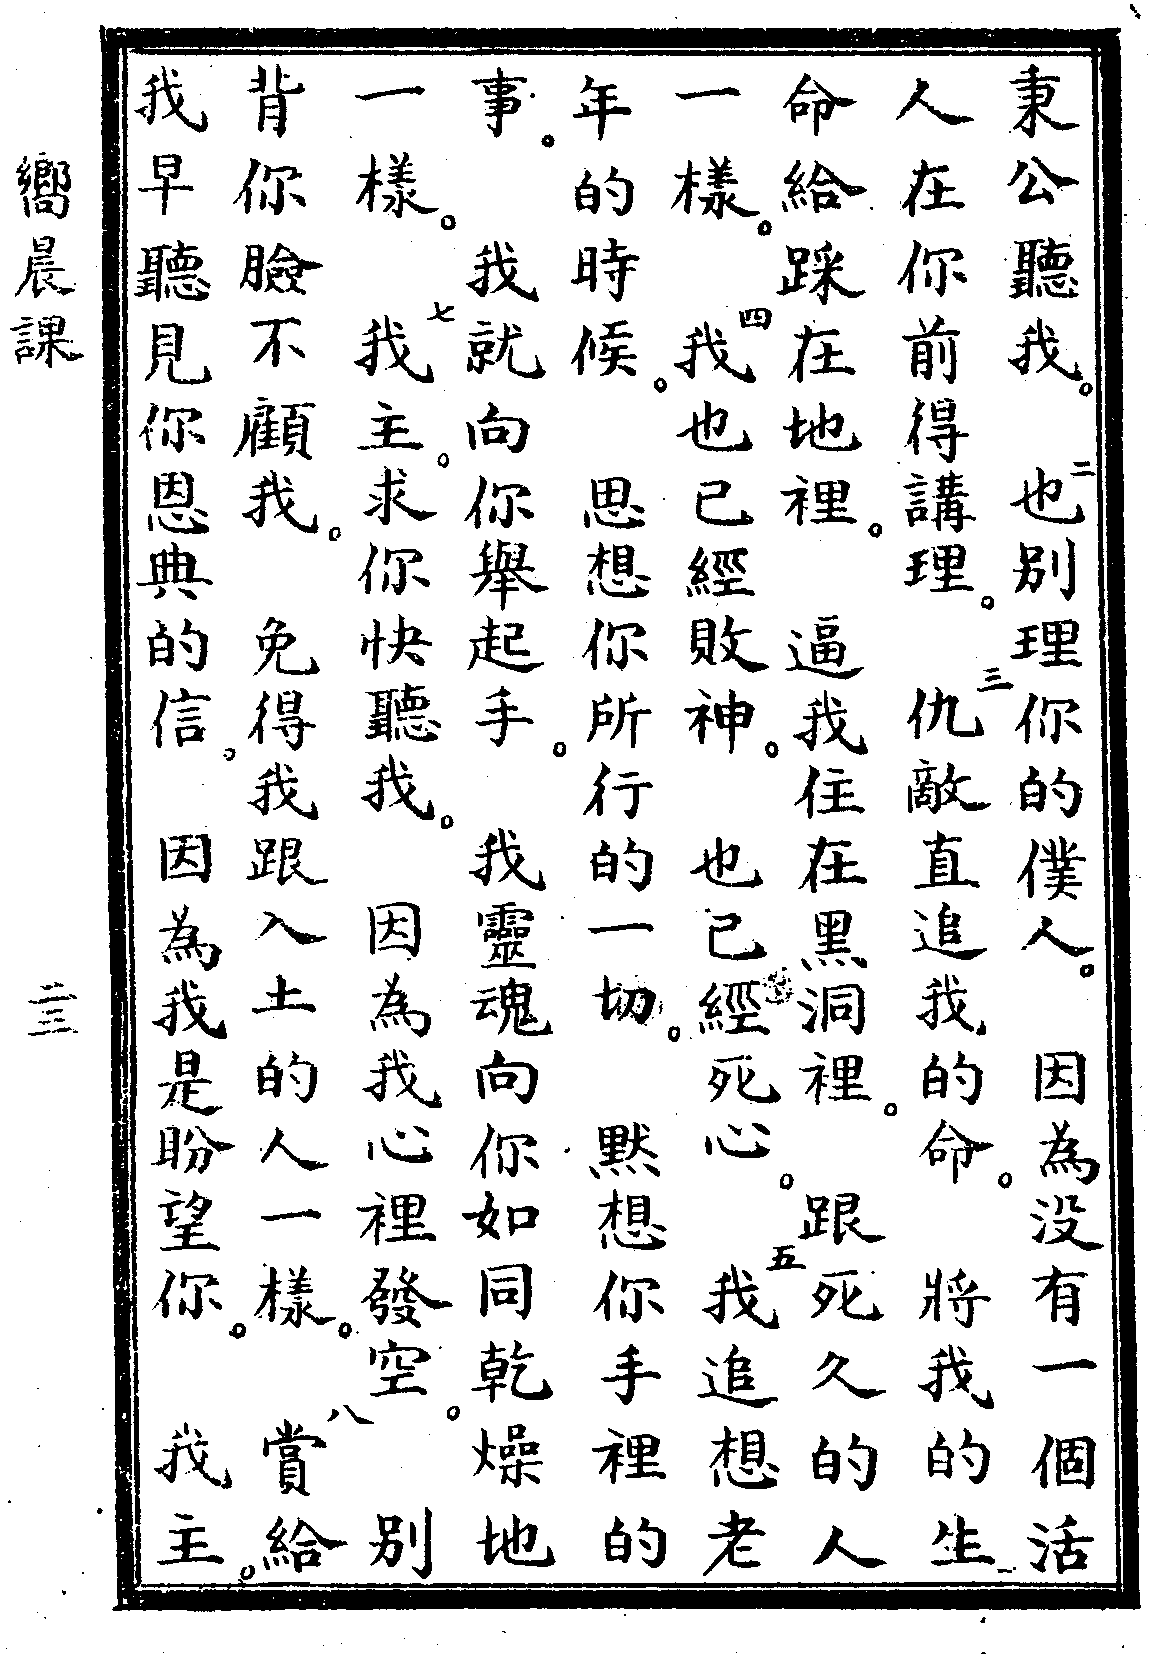 秉公聽我。二也别理你的僕人。因為没有一個活
人在你前得講理。三仇敵直追我的命。將我的生
命給踩在地裡。逼我住在黑洞裡。跟死久的人
一樣。四我也已經敗神。也已經死心。五我追想老
年的時候。思想你所行的一切。默想你手裡的
事。我就向你舉起手。我靈魂向你如同乾燥地
一樣。七我主。求你快聽我。因為我心裡發空。别
背你臉不顧我。免得我跟入土的人一樣。八賞給
我早聽見你恩典的信。因為我是盼望你。我主。
嚮晨課
二三